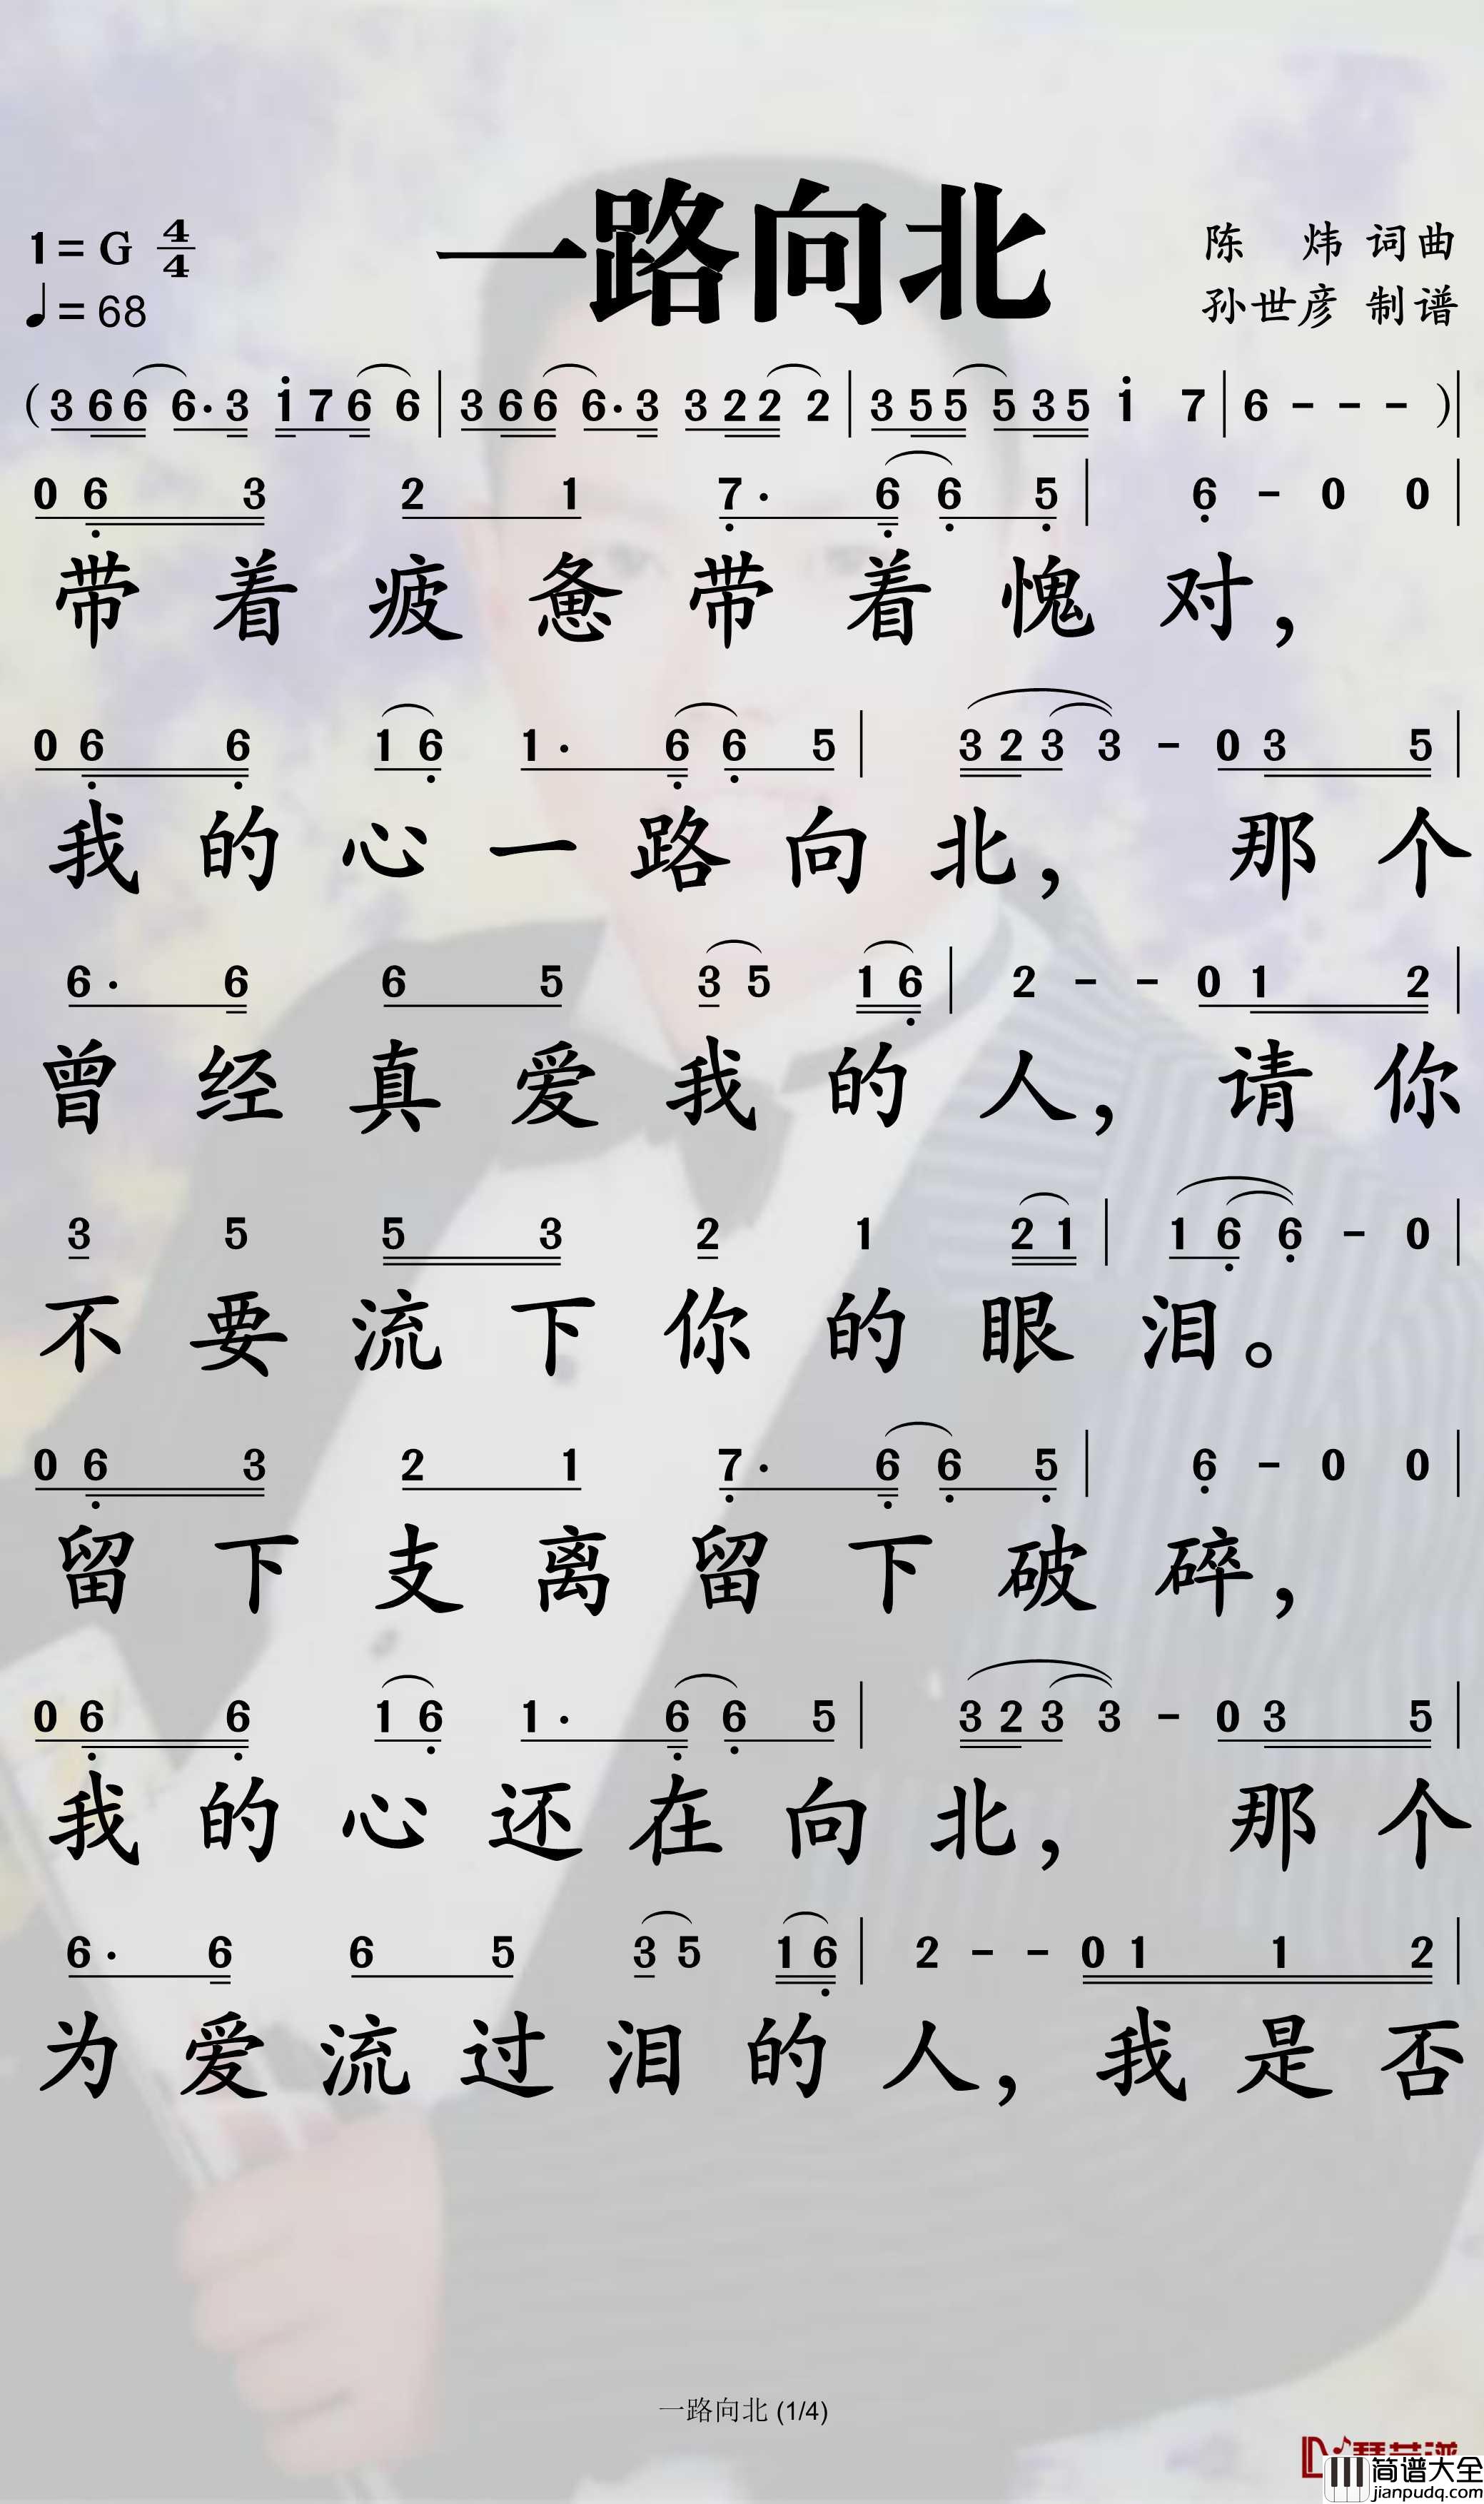 一路向北
1= G 4/4
♩= 68
陈 炜 词曲
孙世彦 制谱
(3 6 6 6· 3 i 7 6 6 | 3 6 6 6· 3 3 2 2 2 | 3 5 5 5 3 5 i 7 | 6 - - - )|
0 6̣ 3 2 1 7̣· 6̣ 6̣ 5̣ | 6̣ - 0 0 |
带着疲惫带着愧对，
0 6̣ 6̣ 1 6̣ 1· 6̣ 6̣ 5 | 3 2 3 3 - 0 3 5 |
我的心一路向北， 那个
6· 6 6 5 3 5 1 6̣ | 2 - - 0 1 2 |
曾经真爱我的人， 请你
3 5 5 3 2 1 2 1 | 1 6̣ 6̣ - 0 |
不要流下你的眼泪。
0 6̣ 3 2 1 7̣· 6̣ 6̣ 5̣ | 6̣ - 0 0 |
留下支离留下破碎，
0 6̣ 6̣ 1 6̣ 1· 6̣ 6̣ 5 | 3 2 3 3 - 0 3 5 |
我的心还在向北， 那个
6· 6 6 5 3 5 1 6̣ | 2 - - 0 1 1 2 |
为爱流过泪的人， 我是否
一路向北 (1/4)
简谱大全
jianpudq.com